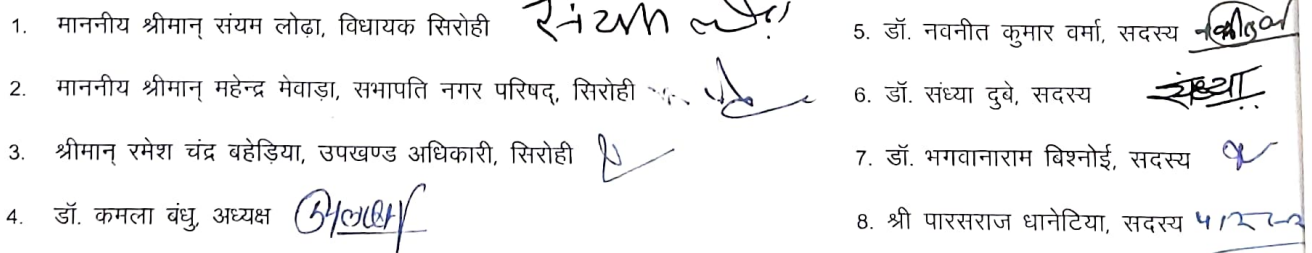 1. माननीय श्रीमान् संयम लोढ़ा, विधायक सिरोही संयम लोढ़ा
2. माननीय श्रीमान् महेन्द्र मेवाड़ा, सभापति नगर परिषद्, सिरोही
3. श्रीमान् रमेश चंद्र बहेड़िया, उपखण्ड अधिकारी, सिरोही
4. डॉ. कमला बंधु, अध्यक्ष
5. डॉ. नवनीत कुमार वर्मा, सदस्य
6. डॉ. संध्या दुबे, सदस्य संध्या
7. डॉ. भगवानाराम बिश्नोई, सदस्य
8. श्री पारसराज धानेटिया, सदस्य